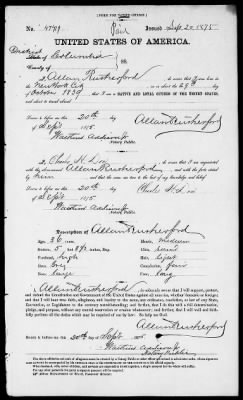 [FORM FOR NATIVE CITIZEN.]
No. 4749 Paid Issued Sept 20 1875
UNITED STATES OF AMERICA.
District of Columbia
State of
County of
SS:
I, Allan Rutherford do swear that I was born in
New York City on or about the 28th day
of October 1839; that I am a NATIVE AND LOYAL CITIZEN OF THE UNITED STATES,
and about to travel abroad.
Allan Rutherford
Sworn to before me, this 20th day
of Sept 1875
Notary Public.
I, Charles H. do swear that I am acquainted
with the above-named Allan Rutherford, and with the facts stated
by him and that the same are true to the best of my knowledge and belief.
Sworn to before me, this 20th day
of Sept 1875
Notary Public.
Description of Allan Rutherford
Age, 36 years. Mouth, medium
Stature, 5 feet inches, Eng. Chin,
Forehead, high Hair, light
Eyes, Complexion, fair
Nose, large Face, long
I, Allan Rutherford do solemnly swear that I will support, protect,
and defend the Constitution and Government of the United States against all enemies, whether domestic or foreign;
and that I will bear true faith, allegiance, and loyalty to the same, any ordinance, resolution, or law of any State,
Convention, or Legislature to the contrary notwithstanding; and further, that I do this with a full determination,
pledge, and purpose, without any mental reservation or evasion whatsoever; and further, that I will well and faithfully
perform all the duties which may be required of me by law. So help me God.
Allan Rutherford
Sworn to before me, this 20th day of Sept 1875
Notary Public.